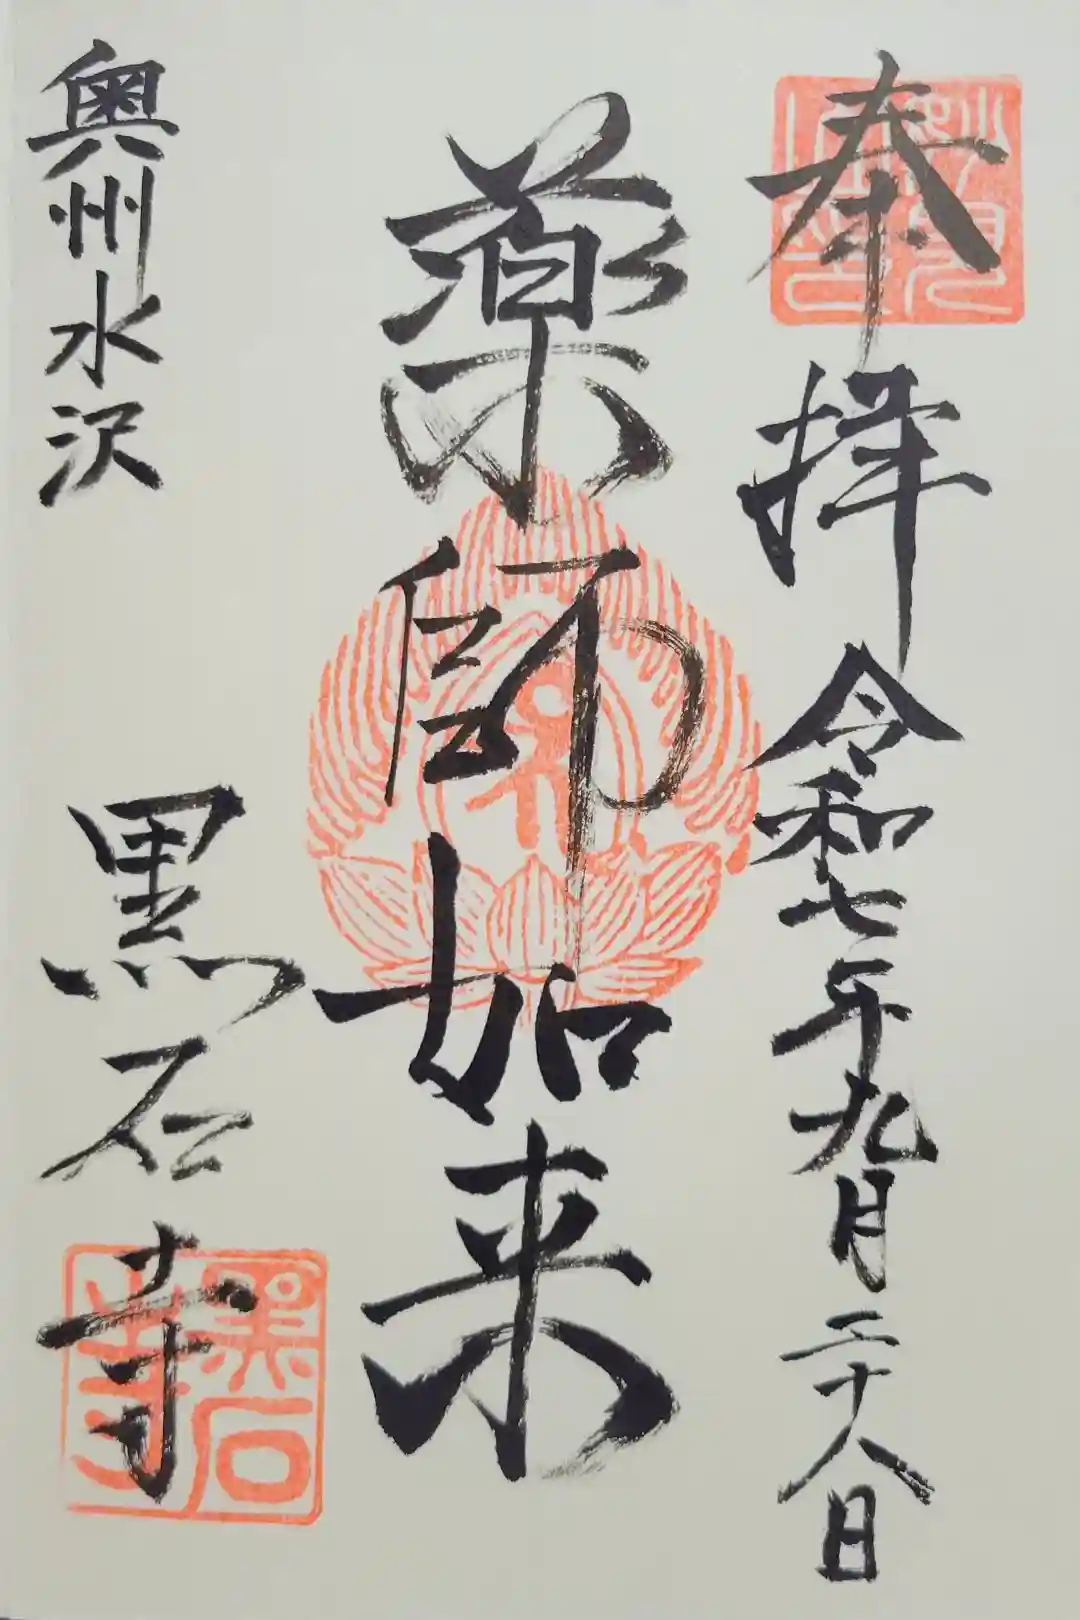 奉拝 令和七年九月二十八日
薬師如来
奥州水沢 黒石寺
黒石寺